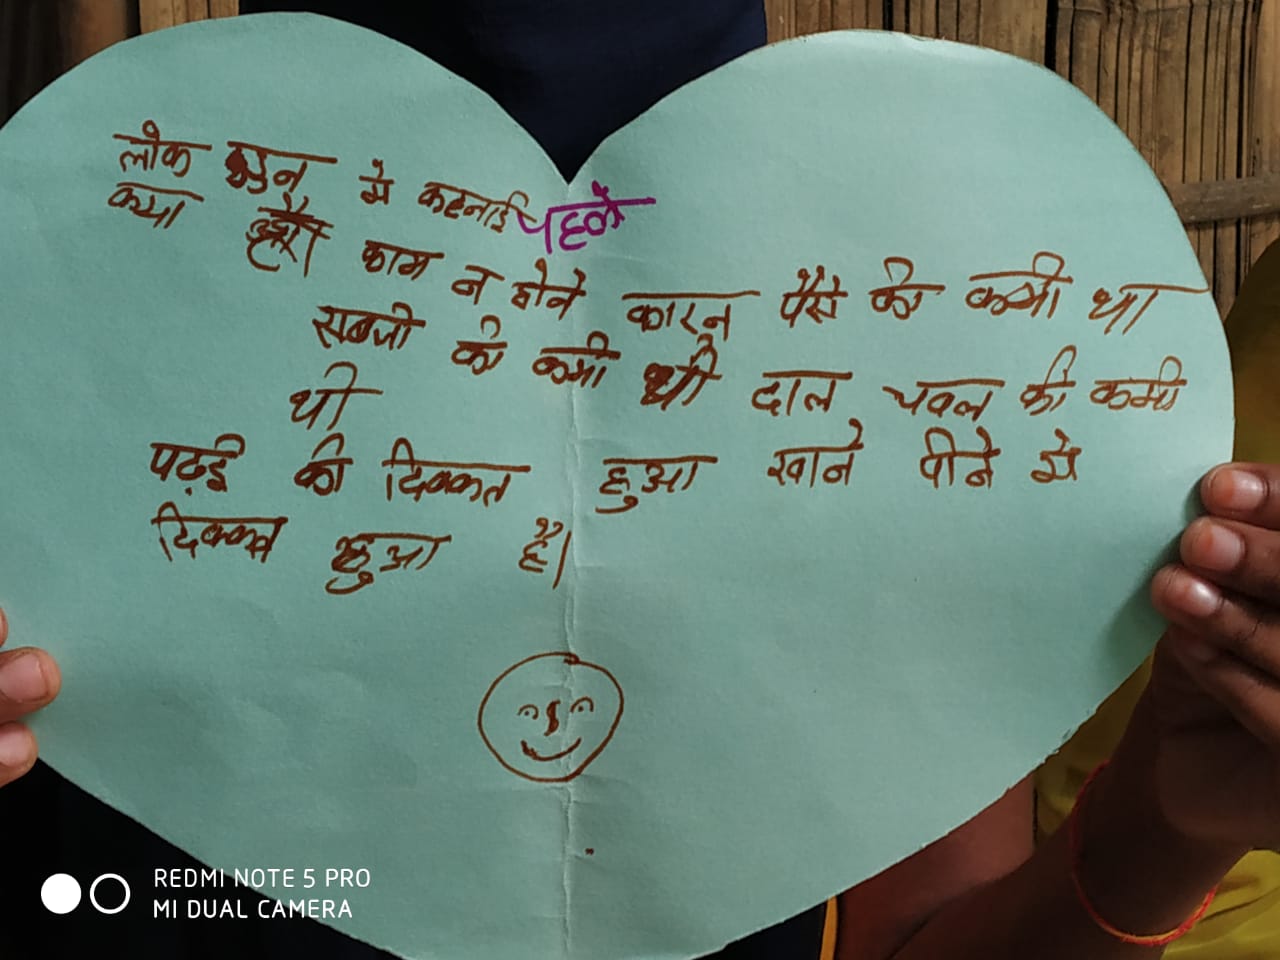 लोक डाउन मे कठनाई पहले
क्या काम न होने कारन पैसे की कमी था
सबजी की कमी थी दाल चवल की कमी
थी
पढ़ई की दिक्कत हुआ खाने पीने मे
दिक्कत हुआ है।
REDMI NOTE 5 PRO
MI DUAL CAMERA